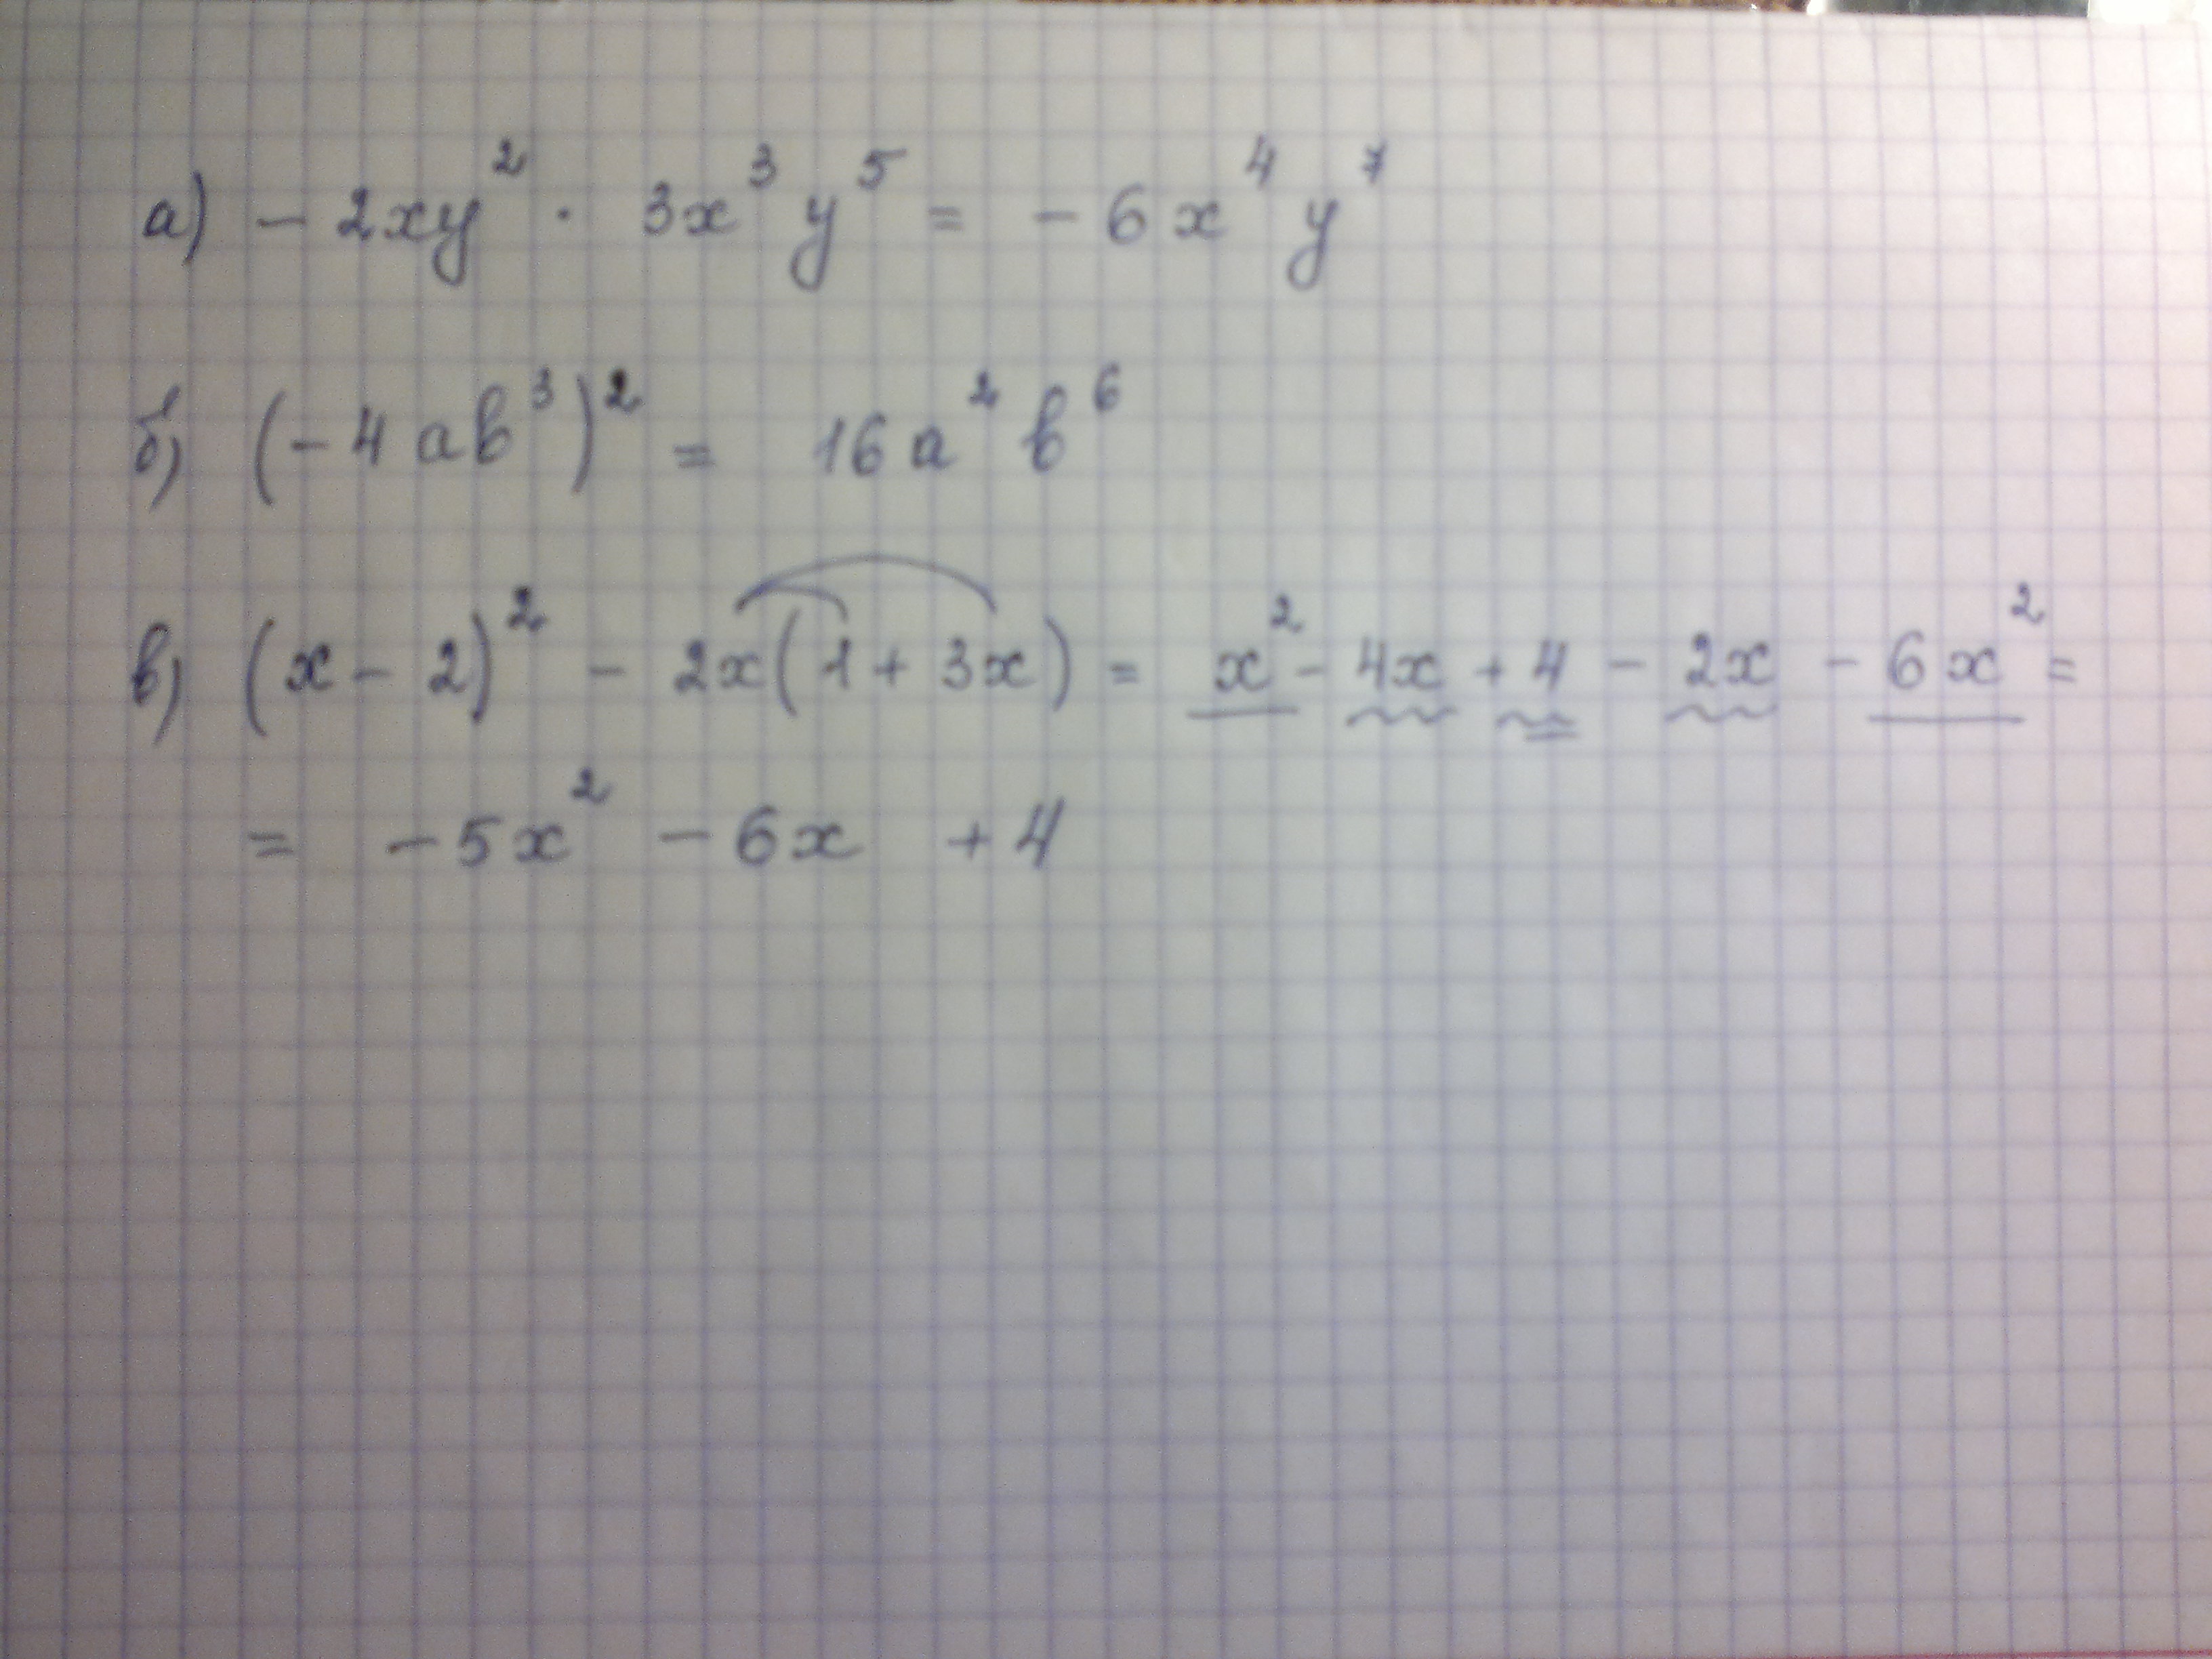 а) - 2xy² · 3x³y⁵ = - 6x⁴y⁷
б) (- 4ab³)² = 16a²b⁶
в) (x - 2)² - 2x(1 + 3x) = x² - 4x + 4 - 2x - 6x² =
= - 5x² - 6x + 4